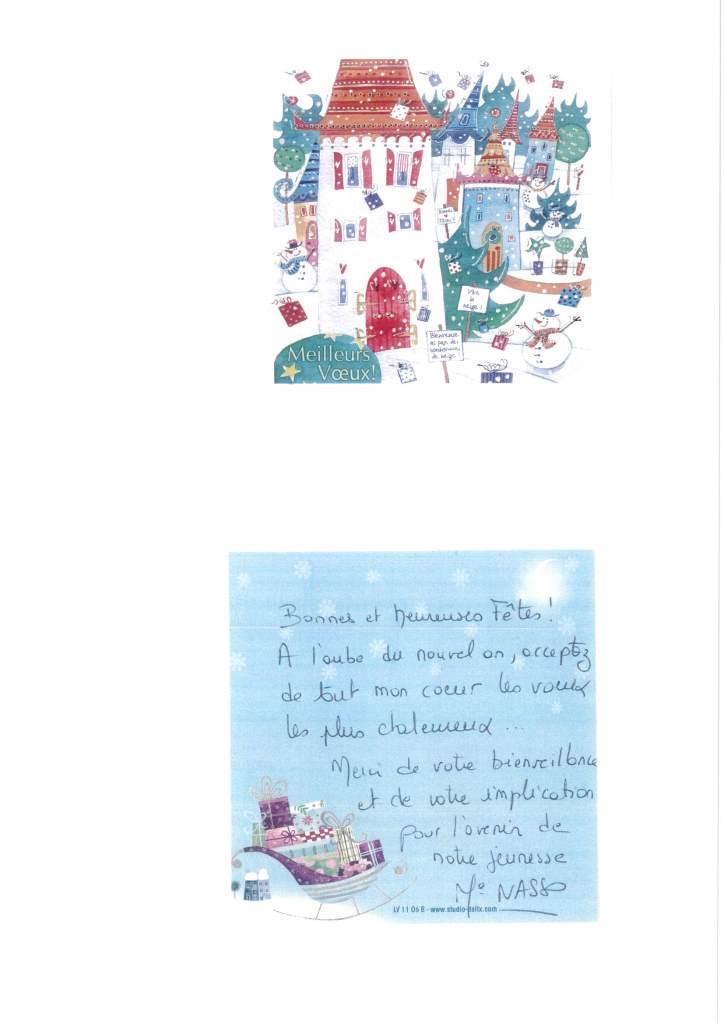 Bonnes
Fêtes !
Vive
la
neige !
Bienvenue
au pays des
bonhommes
de neige
Meilleurs
Vœux!
Bonnes et heureuses Fêtes !
A l'aube du nouvel an, acceptez
de tout mon coeur les voeux
les plus chaleureux ...
Merci de votre bienveillance
et de votre implication
pour l'avenir de
notre jeunesse
Me NASSO
LV 11 06 B - www.studio-dalix.com